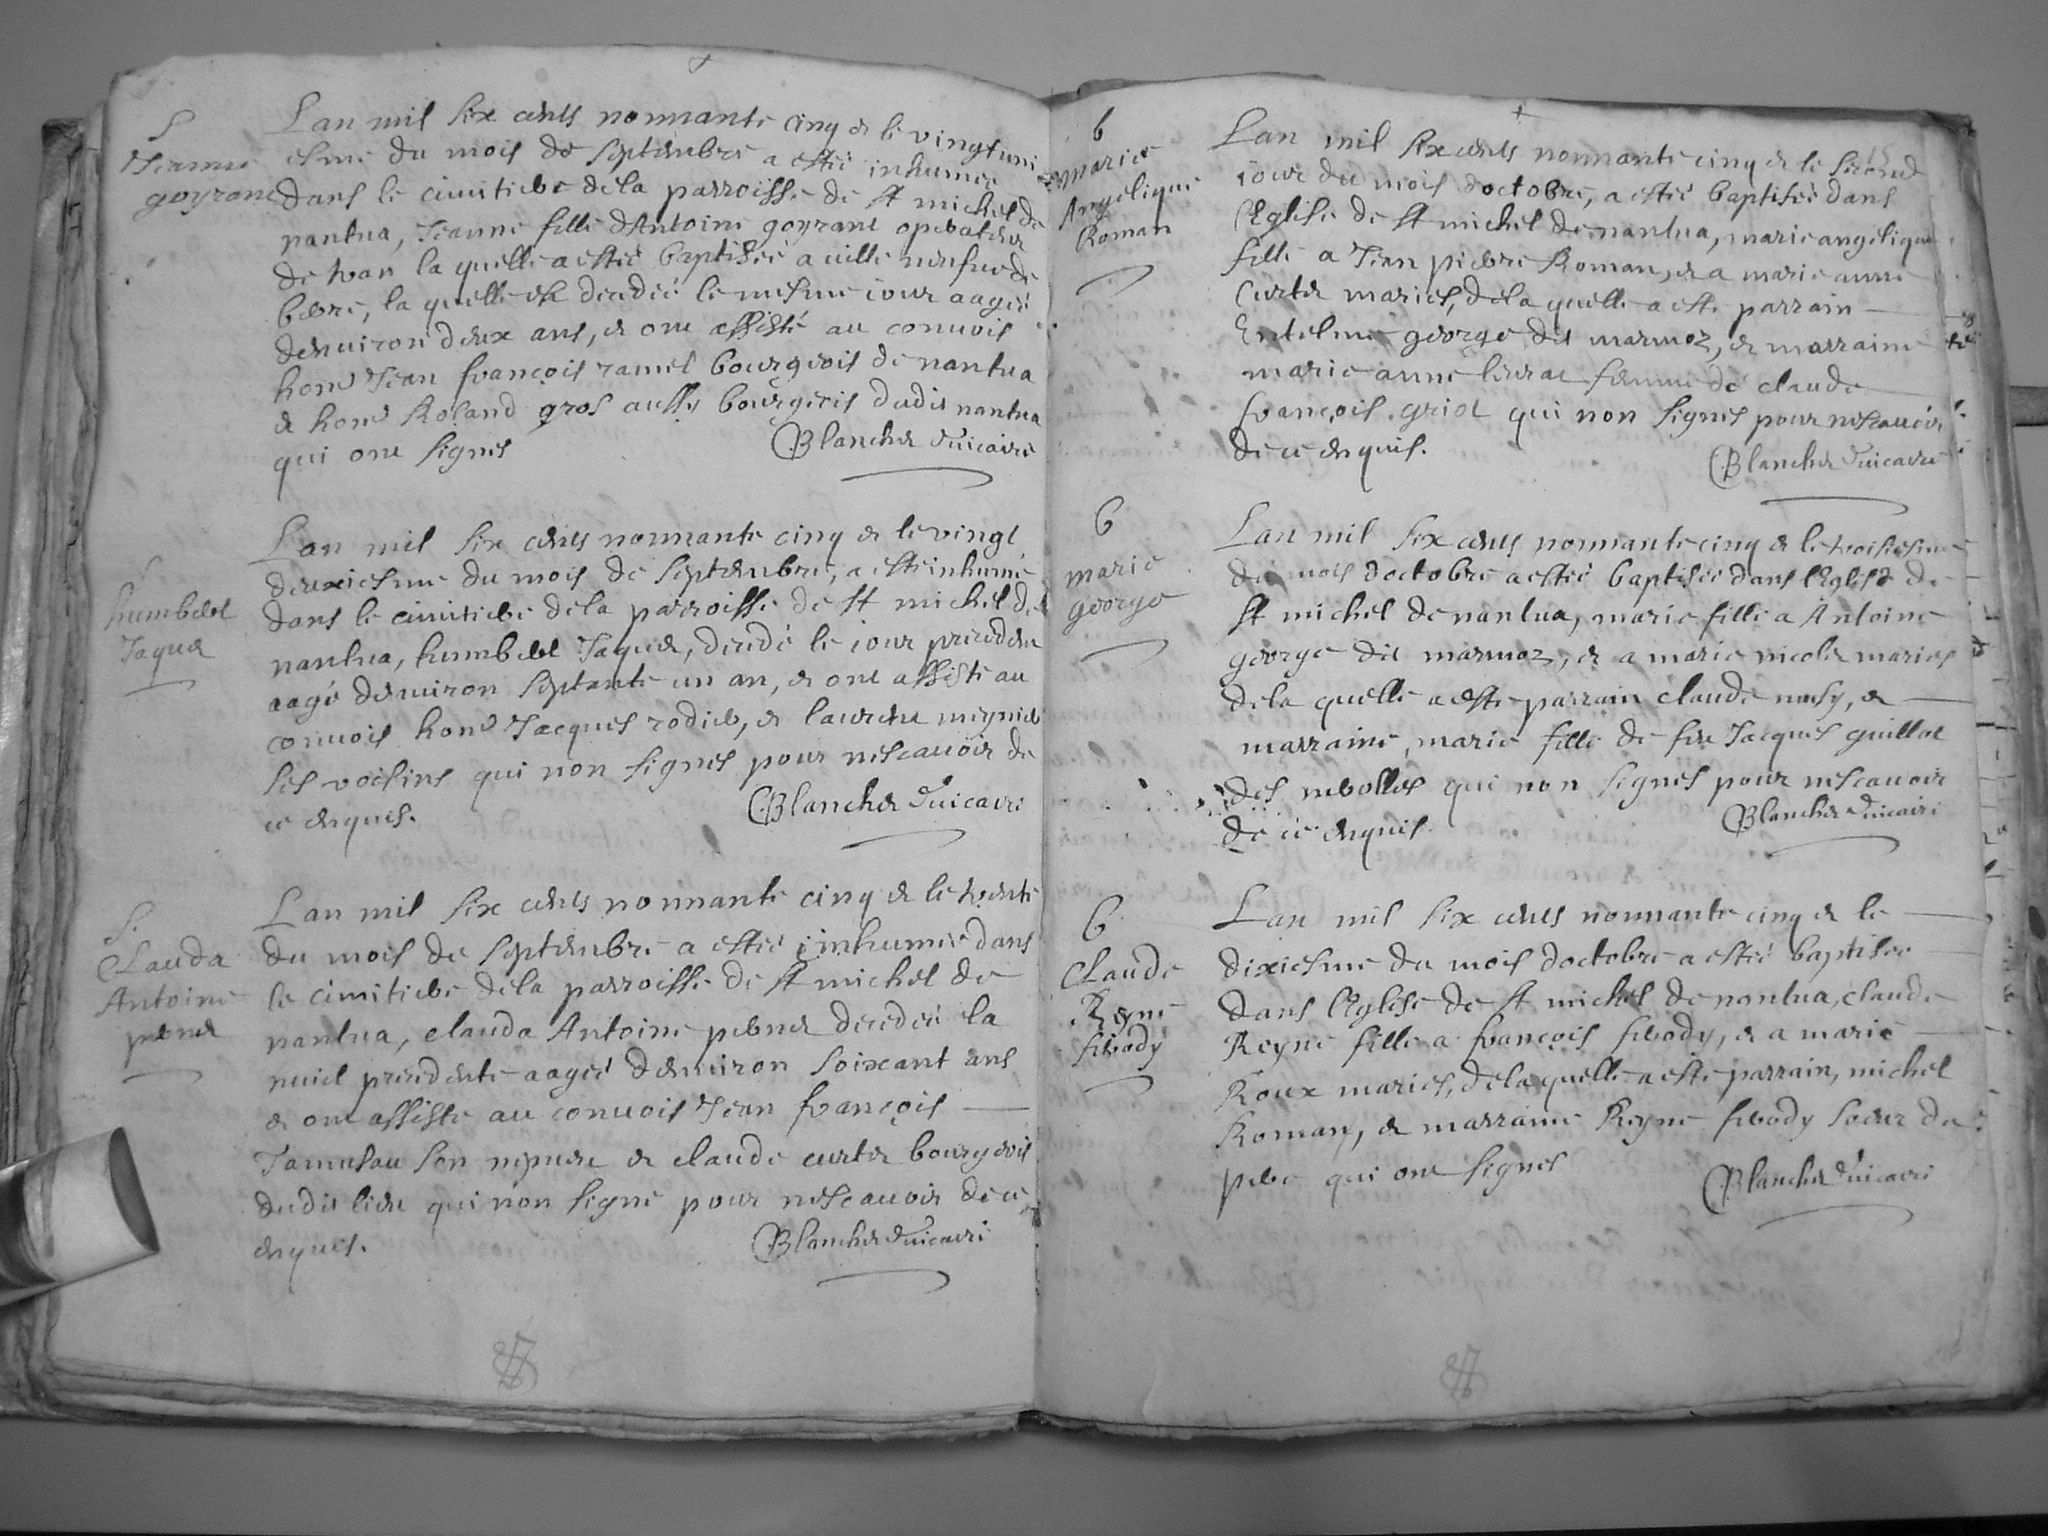 S
Jeanne
goyrane
Lan mil six cents nonnante cinq et le vingtuni
esme du mois de septembre a estée inhumee
dans le cimitiere de la parroisse de st michel de
nantua, Jeanne fille dAntoine goyrane operateur
la quelle a estée baptiseé a ville neufue de
la quelle est decedeé le mesme iour aageé
denuiron deux ans, et ont assisté au conuois
hone Jean françois ramel bourgeois de nantua
et hone Roland gros aussy bourgeois dudit nantua
qui ont signes
Blanchet vicaire
S
humbert
Jaquet
Lan mil six cents nonnante cinq et le vingt
deuxiesme du mois de septembre, a esté inhumé
dans le cimitiere de la parroisse de st michel de
nantua, humbert Jaquet, decedé le iour precedent
aagé denuiron septante un an, et ont assisté au
conuois hone Jacques rodier, et laurent meynier
ses voisins qui non signes pour nescauoir de
ce enquis.
Blanchet vicaire
S.
Clauda
Antoine
pernet
Lan mil six cents nonnante cinq et le trente
du mois de septembre a esteé inhumeé dans
le cimitiere de la parroisse de st michel de
nantua, clauda Antoine pernet decedeé la
nuict precedente aageé denuiron soixant ans
et ont assisté au conuois Jean françois
son nepueu et claude curtet bourgeois
dudit lieu qui non signe pour nescauoir de ce
enquis.
Blanchet vicaire
b
marie
Angelique
Roman
Lan mil six cents nonnante cinq et le second
iour du mois doctobre, a esteé baptiseé dans
lEglise de st michel de nantua, marie angelique
fille a Jean pierre Roman, et a marie anne
Curtet maries, de la quelle a este parrain
Entelme george dit marmoz, et marraine
marie anne femme de claude
françois griot qui non signes pour nescauoir
de ce enquis.
Blanchet vicaire
b
marie
george
Lan mil six cents nonnante cinq et le troisiesme
du mois doctobre a esteé baptiseé dans lEglise de
st michel de nantua, marie fille a Antoine
george dit marmoz, et a marie nicolet maries
de la quelle a esté parrain claude musy, et
marraine, marie fille de feu Jacques guillot
des nerolles qui non signes pour nescauoir
de ce enquis.
Blanchet vicaire
b
Claude
Reyne
sibody
Lan mil six cents nonnante cinq et le
dixiesme du mois doctobre a esteé baptiseé
dans lEglise de st michel de nantua, claude
Reyne fille a françois sibody, et a marie
Roux maries, de la quelle a esté parrain, michel
Roman, et marraine Reyne sibody soeur du
pere qui ont signes
Blanchet vicaire